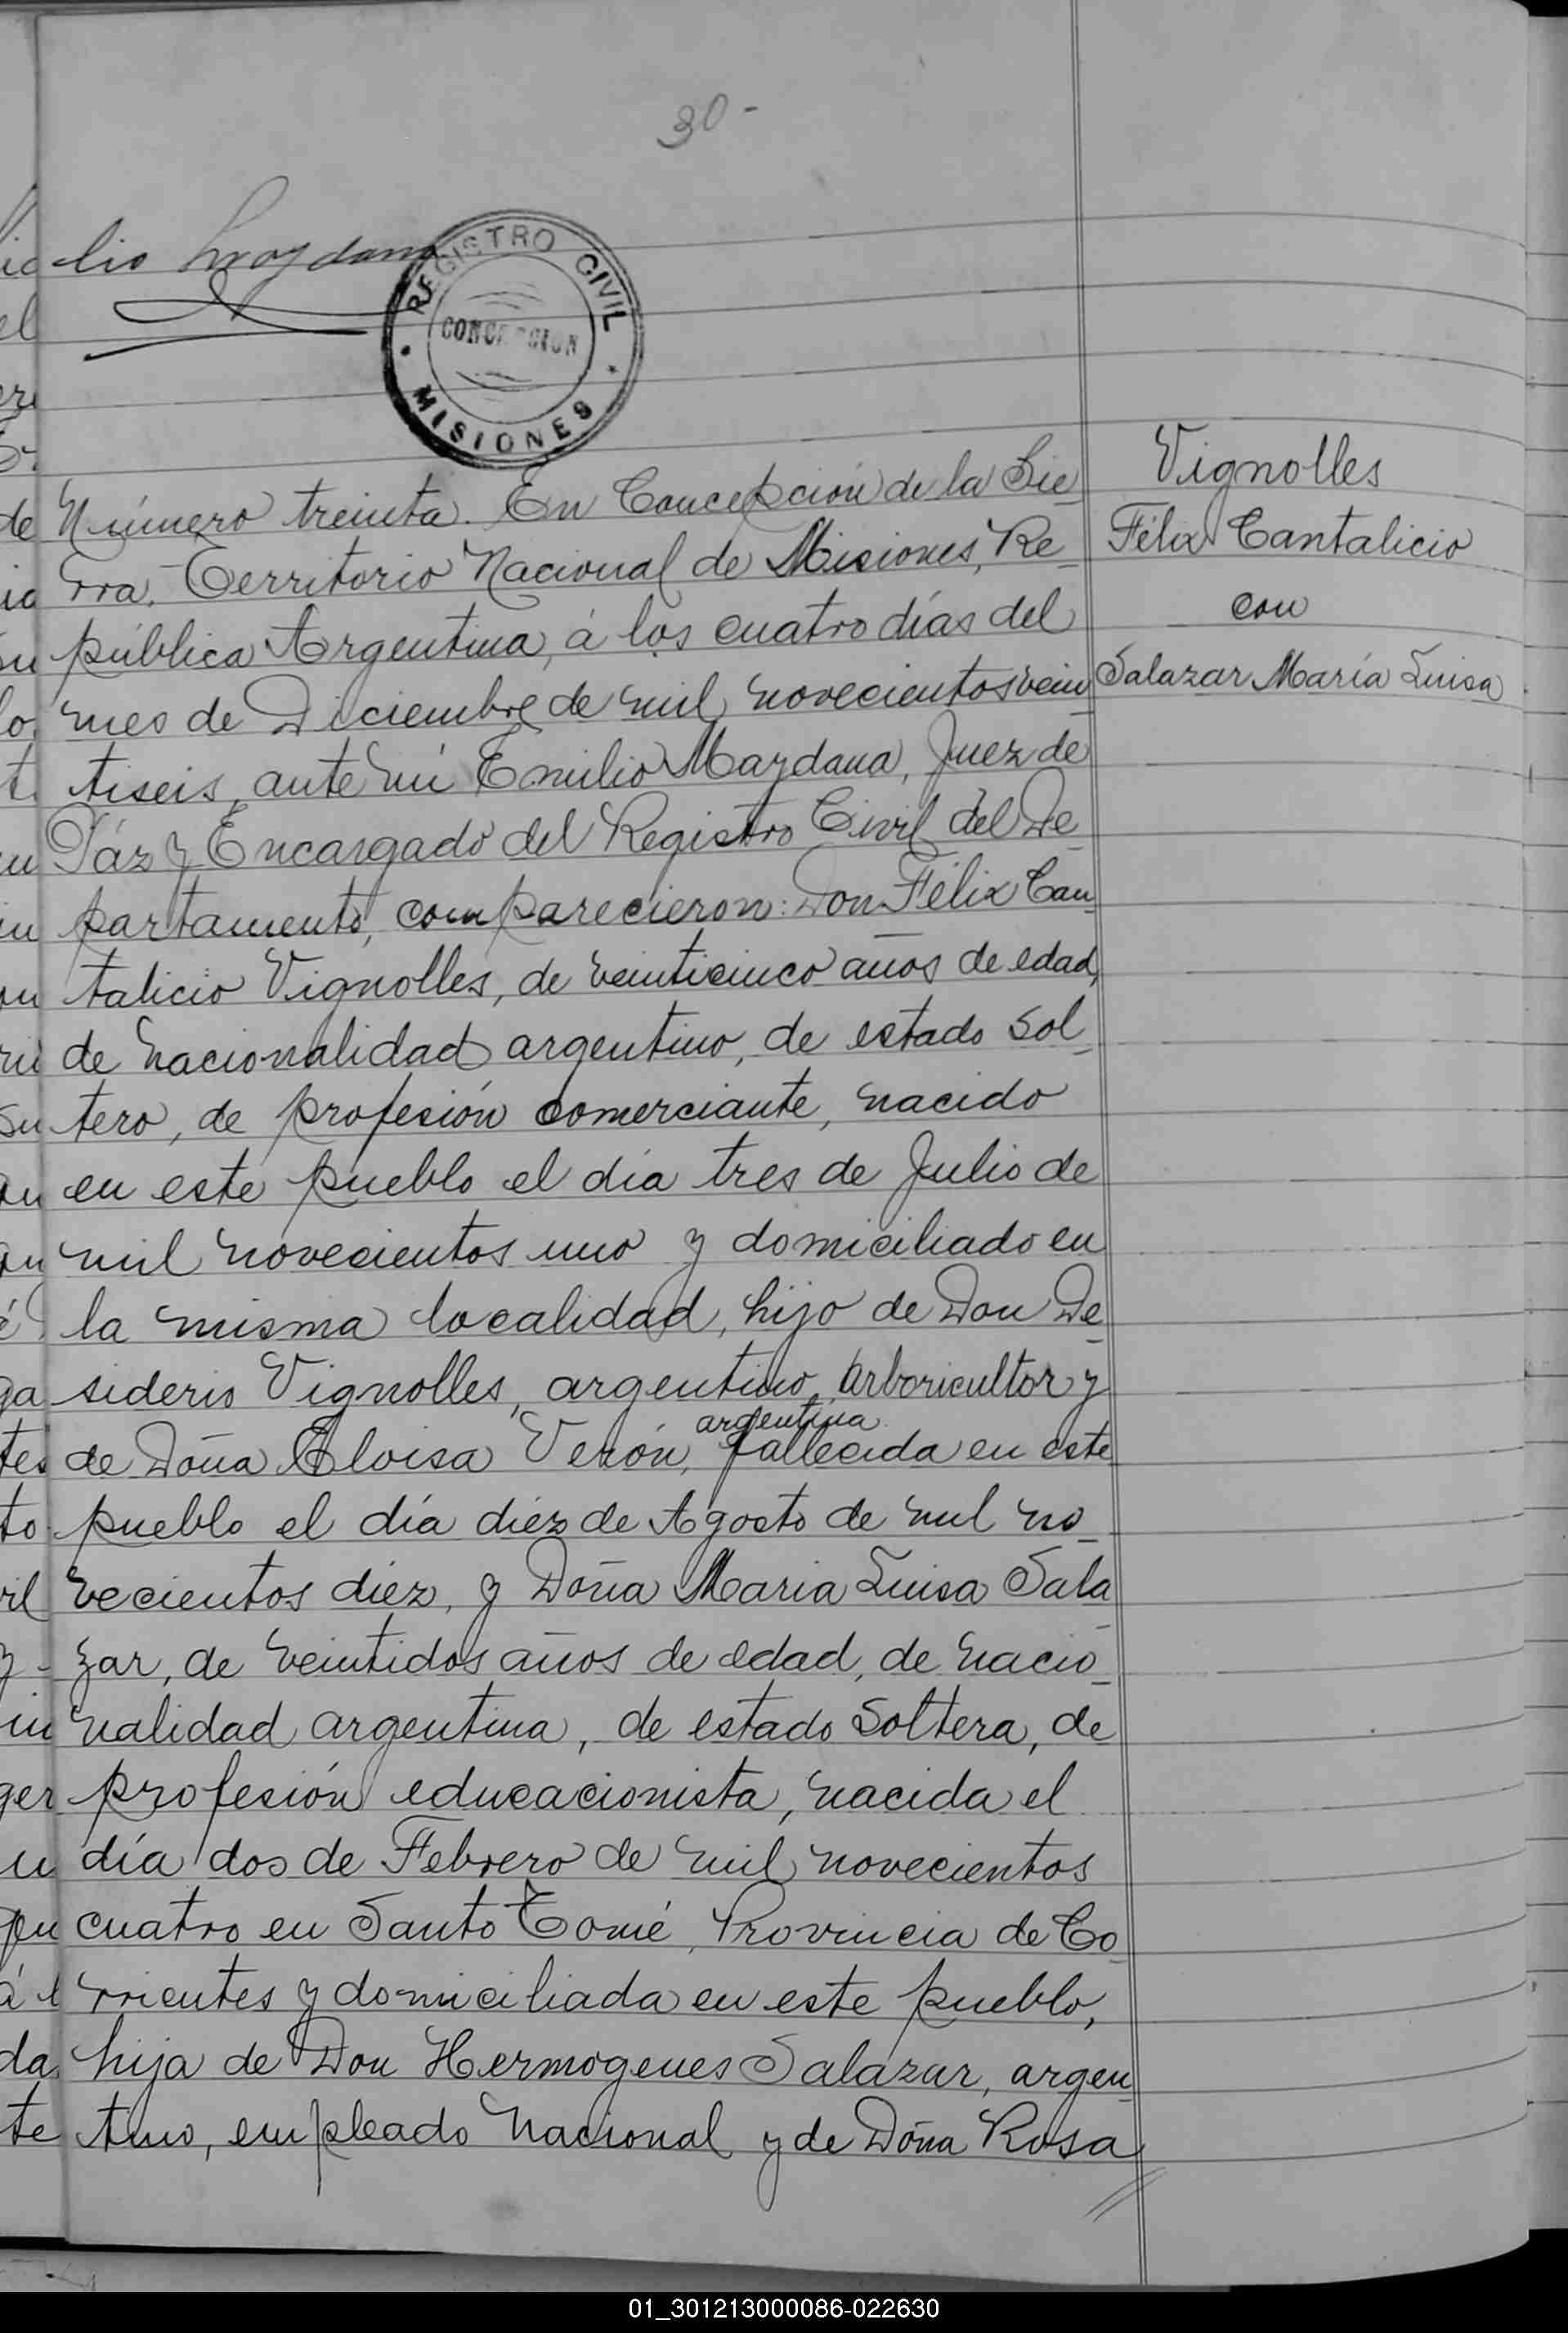 30-
lio Maydana
REGISTRO CIVIL
CONCEPCION
MISIONES
Número treinta. En Concepción de la Sie
rra, Territorio Nacional de Misiones, Re
pública Argentina, á los cuatro días del
mes de Diciembre de mil novecientos vein
tiseis, ante mí Emilio Maydana, Juez de
Páz y Encargado del Registro Civil del De
partamento, comparecieron: Don Félix Can
talicio Vignolles, de veinticinco años de edad,
de nacionalidad argentino, de estado sol
tero, de profesión comerciante, nacido
en este pueblo el día tres de Julio de
mil novecientos uno y domiciliado en
la misma localidad, hijo de Don De
siderio Vignolles, argentino, arboricultor y
argentina
de Doña Eloisa Verón, fallecida en este
pueblo el día diez de Agosto de mil no
vecientos diez, y Doña Maria Luisa Sala
zar, de veintidos años de edad, de nacio
nalidad argentina, de estado soltera, de
profesión educacionista, nacida el
día dos de Febrero de mil novecientos
cuatro en Santo Tomé, Provincia de Co
rrientes y domiciliada en este pueblo,
hija de Don Hermogenes Salazar, argen
tino, empleado nacional y de Doña Rosa
Vignolles
Félix Cantalicio
con
Salazar María Luisa
01_301213000086-022630